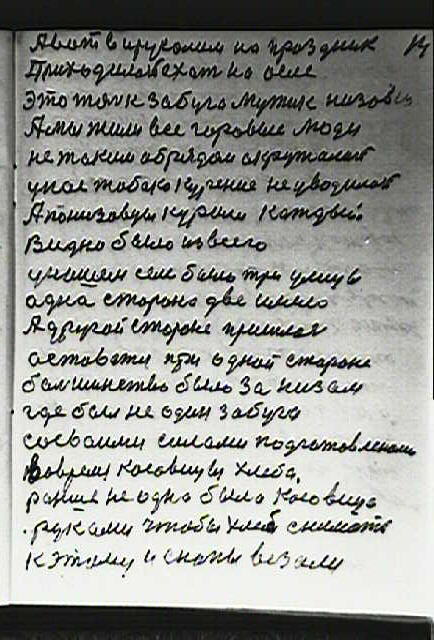 А вот в ирусалим на праздник 14
Приходилось ехат на осле
Это так забуга мужик низовы
А мы жили все горовые люди
не таким обрядом одружалис
у нас табака курение не уводилос
А понизовуи курили каждый.
Видно было из всего
у нашем селе было три улицы
одна сторона две
А другой стороне пришлос
остовати при одной стороне
болшинство было за низам
где был не один забуга
сосвоими силами подготовлеными
Вовремя косовицы хлеба,
ранше не одна была косовица
руками чтобы хлеб снимати
к этому и снопы везали